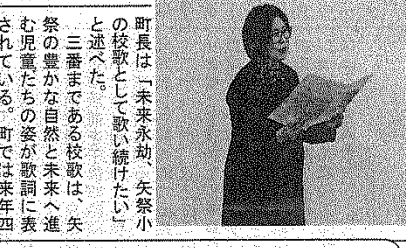 町長は「未来永劫、矢祭小
の校歌として歌い続けたい」
と述べた。
　三番まである校歌は、矢
祭の豊かな自然と未来へ進
む児童たちの姿が歌詞に表
されている。町では来年四